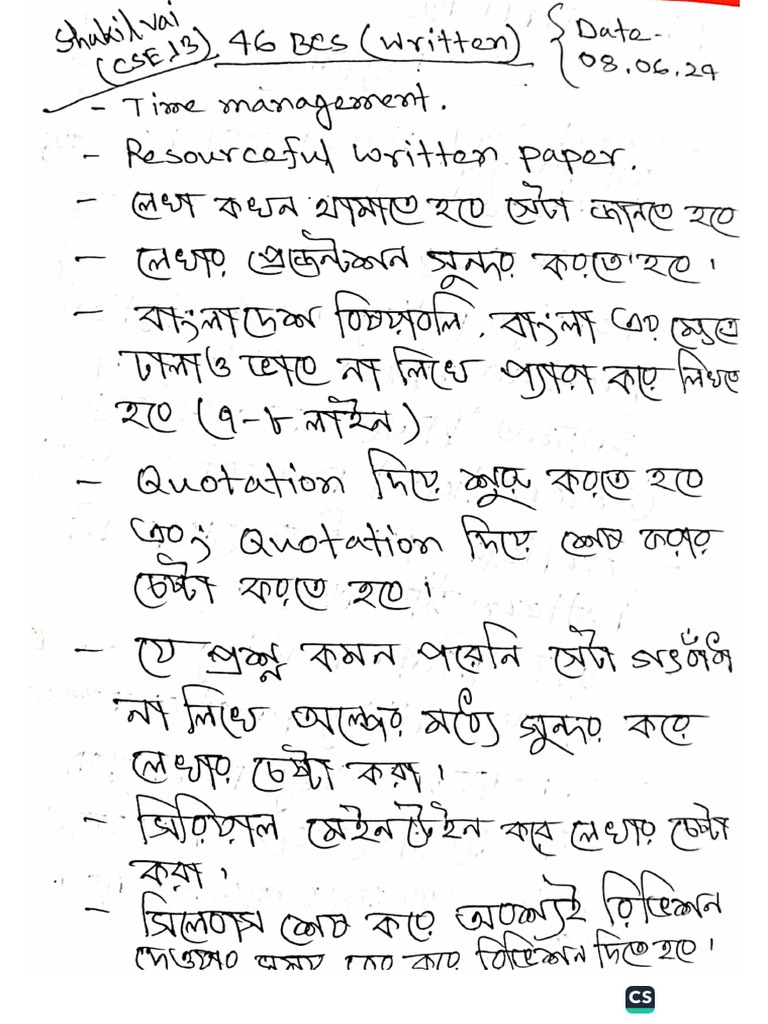 Shakil vai
(CSE 13)
46 BCS (Written)
Date-
08.06.24
- Time management.
- Resourceful written paper.
- লেখা কখন থামাতে হবে সেটা জানতে হবে
- লেখার প্রেজেন্টেশন সুন্দর করতে হবে।
- বাংলাদেশ বিষয়াবলি, বাংলা এর ক্ষেত্রে
ঢালাও ভাবে না লিখে প্যারা করে লিখতে
হবে (৭-৮ লাইন)
- Quotation দিয়ে শুরু করতে হবে
এবং Quotation দিয়ে শেষ করার
চেষ্টা করতে হবে।
- যে প্রশ্ন কমন পরেনি সেটা
না লিখে অল্পের মধ্যে সুন্দর করে
লেখার চেষ্টা করা।
- সিরিয়াল মেইনটেইন করে লেখার চেষ্টা
করা।
- সিলেবাস শেষ করে অবশ্যই রিভিশন
দেওয়ার করে রিভিশন দিতে হবে।
CS